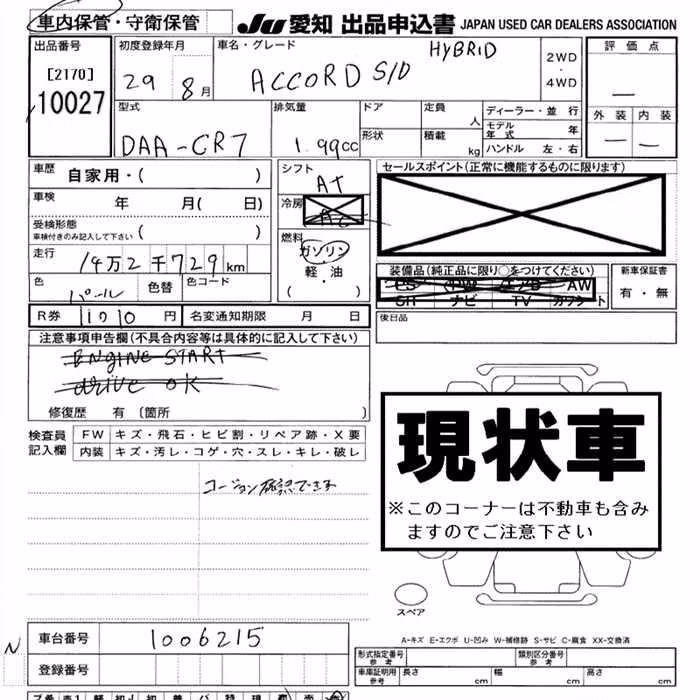 車内保管・守衛保管 JU 愛知 出品申込書 JAPAN USED CAR DEALERS ASSOCIATION
出品番号 初度登録年月 車名・グレード HYBRID 評価点
[2170] 29 8月 ACCORD S/D 2WD・4WD
10027 外装 内装
型式 排気量 ドア 定員 人 ディーラー・並行
モデル年式 年
DAA-CR7 1.99cc 形状 積載 kg ハンドル 左・右
車歴 自家用・( ) シフト AT セールスポイント(正常に機能するものに限ります)
車検 年 月( 日) 冷房 AC
受検形態
車検付きのみ記入して下さい ( )
燃料 ガソリン
走行 14万2千729km 軽・油 装備品(純正品に限り○をつけてください) 新車保証書
色 パール 色替 色コード (・) SR ナビ TV AW 有・無
R券 11710円 名変通知期限 月 日 後日品
注意事項申告欄(不具合内容等は具体的に記入して下さい)
ENGINE START
drive OK
修復歴 有 〔箇所 〕
検査員記入欄 FW キズ・飛石・ヒビ割・リペア跡・X要
内装 キズ・汚レ・コゲ・穴・スレ・キレ・破レ
コーション確認できず
現状車
※このコーナーは不動車も含み
ますのでご注意下さい
スペア
A-キズ E-エクボ U-凹み W-補修跡 S-サビ C-腐食 XX-交換済
N 車台番号 1006215
登録番号
形式指定番号 参考 類別区分番号 参考
車庫証明用 参考 長さ cm 幅 cm 高さ cm